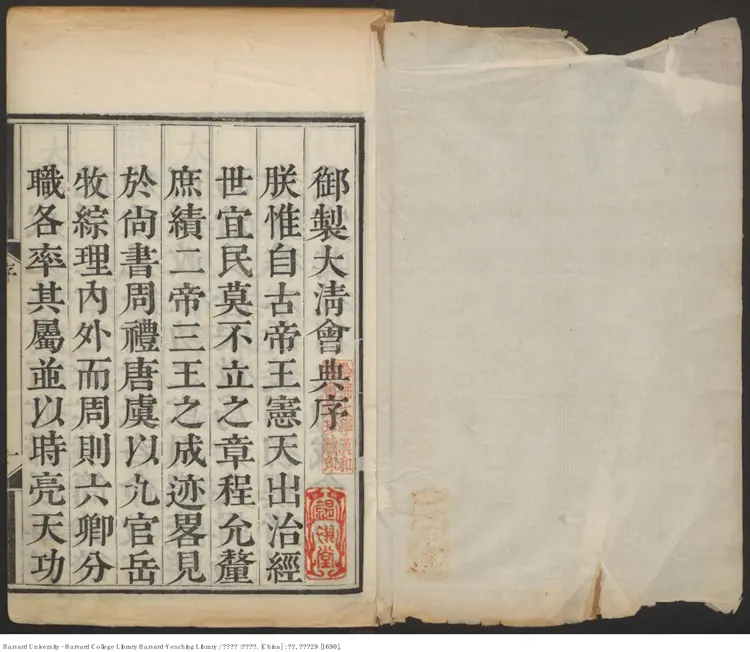 御製大淸會典序
朕惟自古帝王憲天出治經
世宜民莫不立之章程允釐
庶績二帝三王之成迹畧見
於尙書周禮唐虞以九官岳
牧綜理內外而周則六卿分
職各率其屬並以時亮天功
序
一
Harvard University - Harvard College Library Harvard-Yenching Library / ???? : ????. [China] : ??, ???29 [1690].